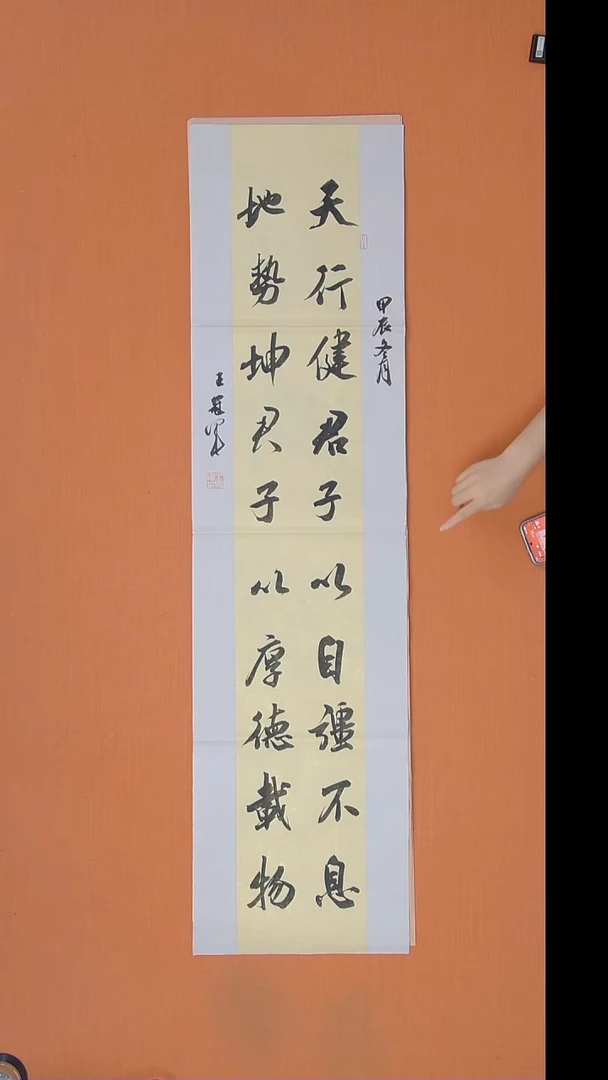 甲辰冬月
天行健君子以自彊不息
地勢坤君子以厚德載物
王